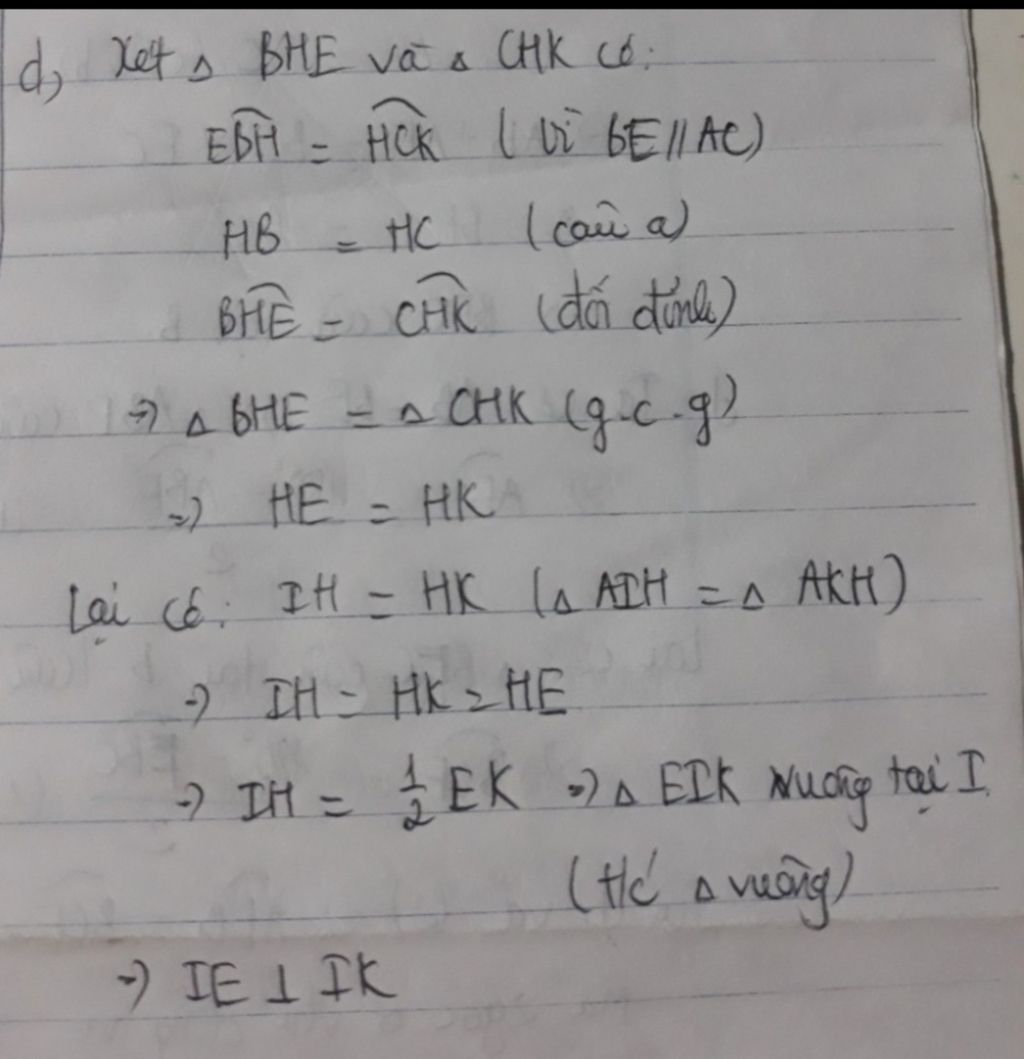 d, Xét Δ BHE và Δ CHK có:
EBH = HCK ( vì BE // AC)
HB = HC (câu a)
BHE = CHK (đối đỉnh)
=> Δ BHE = Δ CHK (g.c.g)
=> HE = HK
Lại có: IH = HK (Δ AIH = Δ AKH)
=> IH = HK = HE
=> IH = 1/2 EK => Δ EIK vuông tại I.
(t/c Δ vuông)
=> IE ⊥ IK